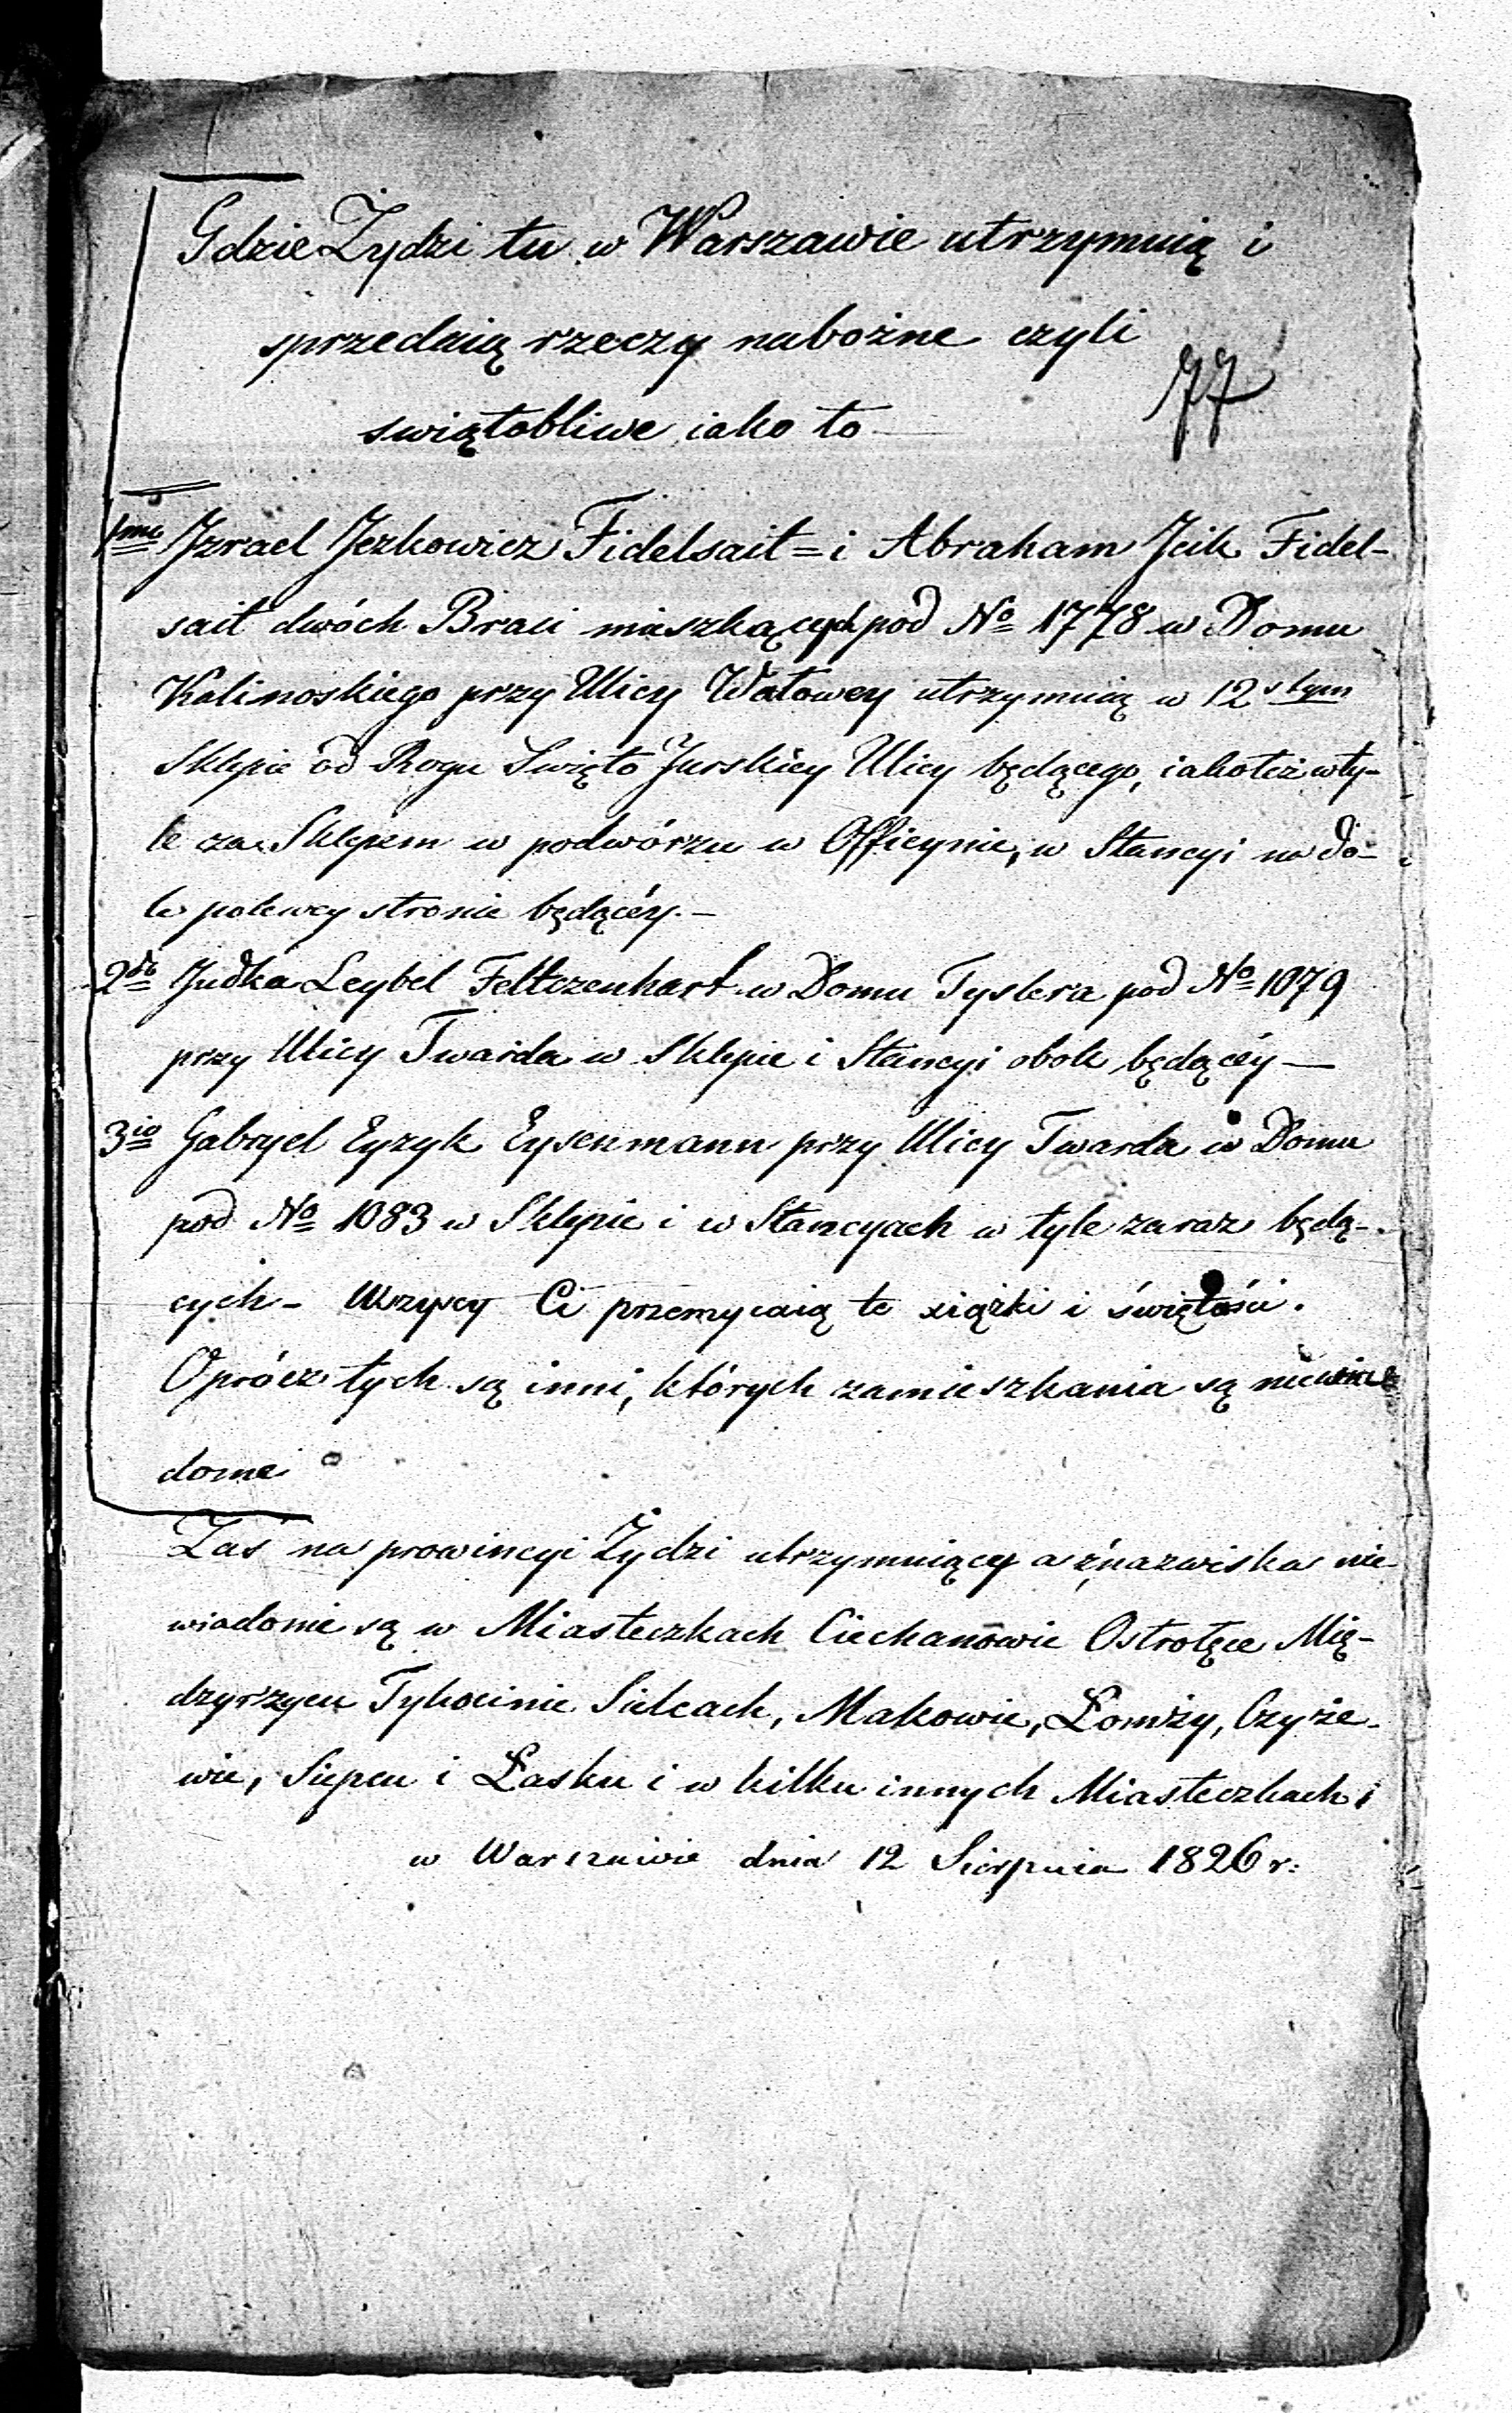 Gdzie Żydzi tu w Warszawie utrzymuią i
sprzedaią rzeczy nabożne czyli
77
swiątobliwe iako to
1mo Jzrael Jezkowicz Fidelsait = i Abraham Jcik Fidel-
sait dwóch Braci mieszkących pod No 1778 w Domu
Kalinoskiego przy Ulicy Wałowey utrzymuią w 12stym
Sklepie od Rogu Swięto Jurskiey Ulicy będącego, iakoteż w ty-
le za Sklepem w podwórzu w Officynie, w Stancyi na do-
le po lewey stronie będącéy. -
2do Judka Leybel Feltczenhart w Domu Tyslera pod No 1079
przy Ulicy Twarda w Sklepie i Stancyi obok będącéy —
3io Gabryel Eyzyk Eysenmann przy Ulicy Twarda w Domu
pod No 1083 w Sklepie i w Stancyach w tyle zaraz będą-
cych - Wszyscy Ci przemycaią te xiążki i świętości.
Oprócz tych są inni, których zamieszkania są niewia
dome
Zaś na prowincyi Żydzi utrzymuiący a z nazwiska nie-
wiadome są w Miasteczkach Ciechanowie Ostrołęce Mię-
dzyrzycu Tykocinie Sielcach, Makowie, Łomży, Czyże-
wie, Siepcu i Łasku i w kilku innych Miasteczkach
w Warszawie dnia 12 Sierpnia 1826 r: